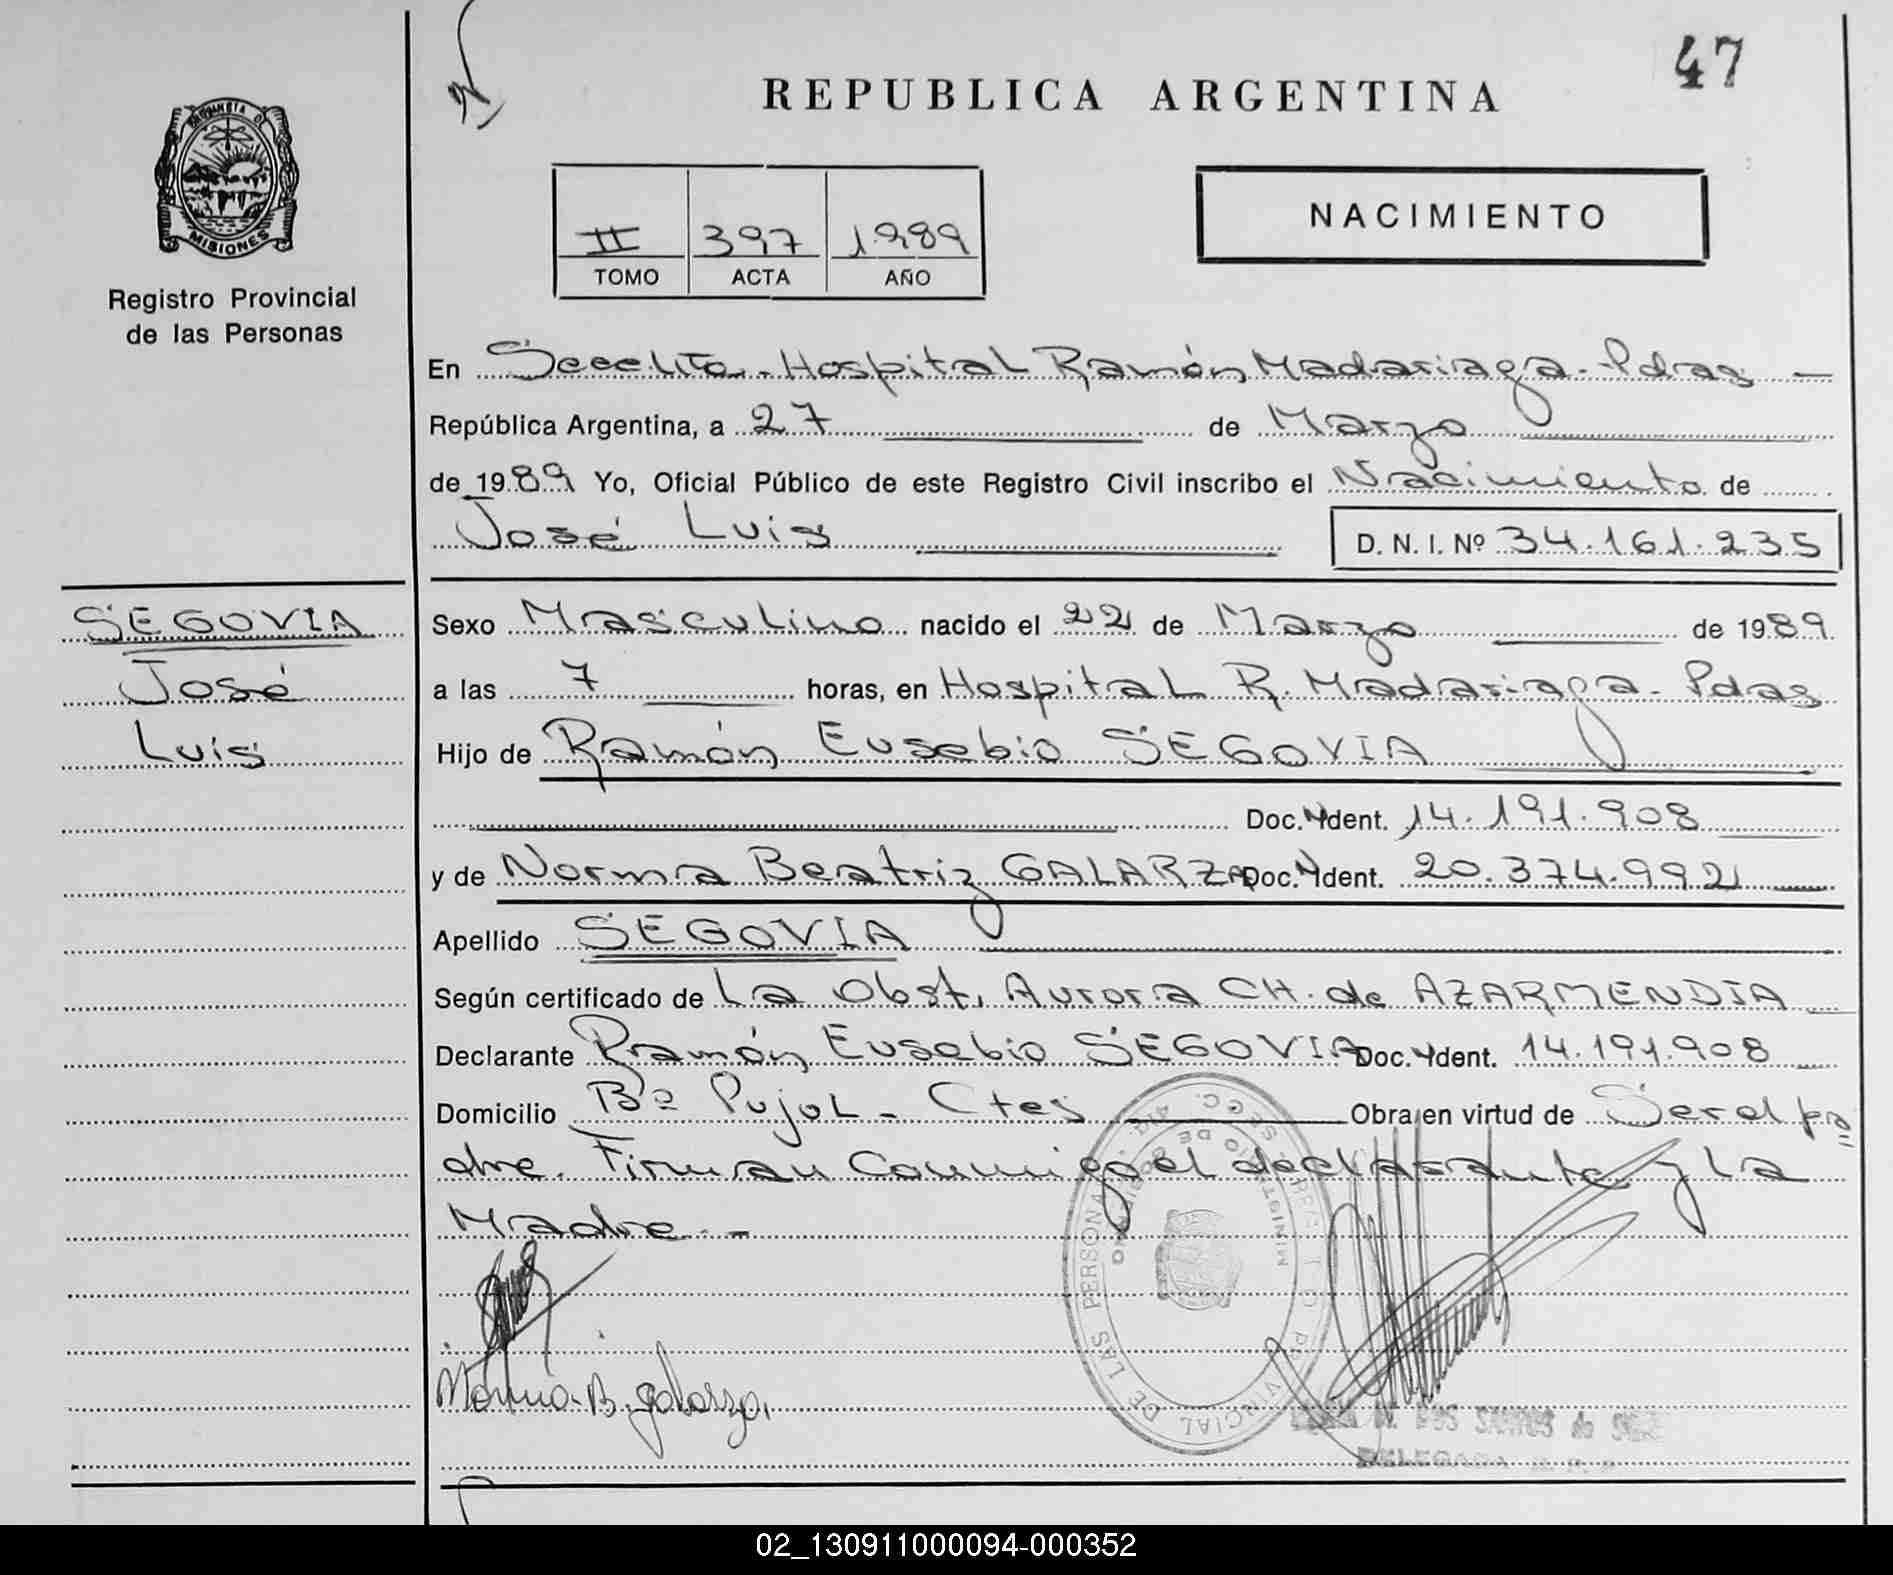 47
REPUBLICA ARGENTINA
PROVINCIA D
MISIONES
Registro Provincial
de las Personas
II 397 1989
TOMO ACTA AÑO
NACIMIENTO
En Seccelita - Hospital Ramón Madariaga - Pdas -
República Argentina, a 27 de Marzo
de 1989 Yo, Oficial Público de este Registro Civil inscribo el Nacimiento de
José Luis D. N. I. Nº 34.161.235
SEGOVIA
José
Luis
Sexo Masculino nacido el 22 de Marzo de 1989
a las 7 horas, en Hospital R. Madariaga - Pdas
Hijo de Ramón Eusebio SEGOVIA
Doc. Ident. 14.191.908
y de Norma Beatriz GALARZA Doc. Ident. 20.374.992
Apellido SEGOVIA
Según certificado de La Obst. Aurora CH. de AZARMENDIA
Declarante Ramón Eusebio SEGOVIA Doc. Ident. 14.191.908
Domicilio Bº Pujol - Ctes Obra en virtud de Ser el pa
dre. Firman Conmigo el declarante y la
Madre. -
Norma B. galarza.
REGISTRO PROVINCIAL DE LAS PERSONAS
MINISTERIO DE GOBIERNO
DOS SANTOS de
DELEGADA
02_130911000094-000352